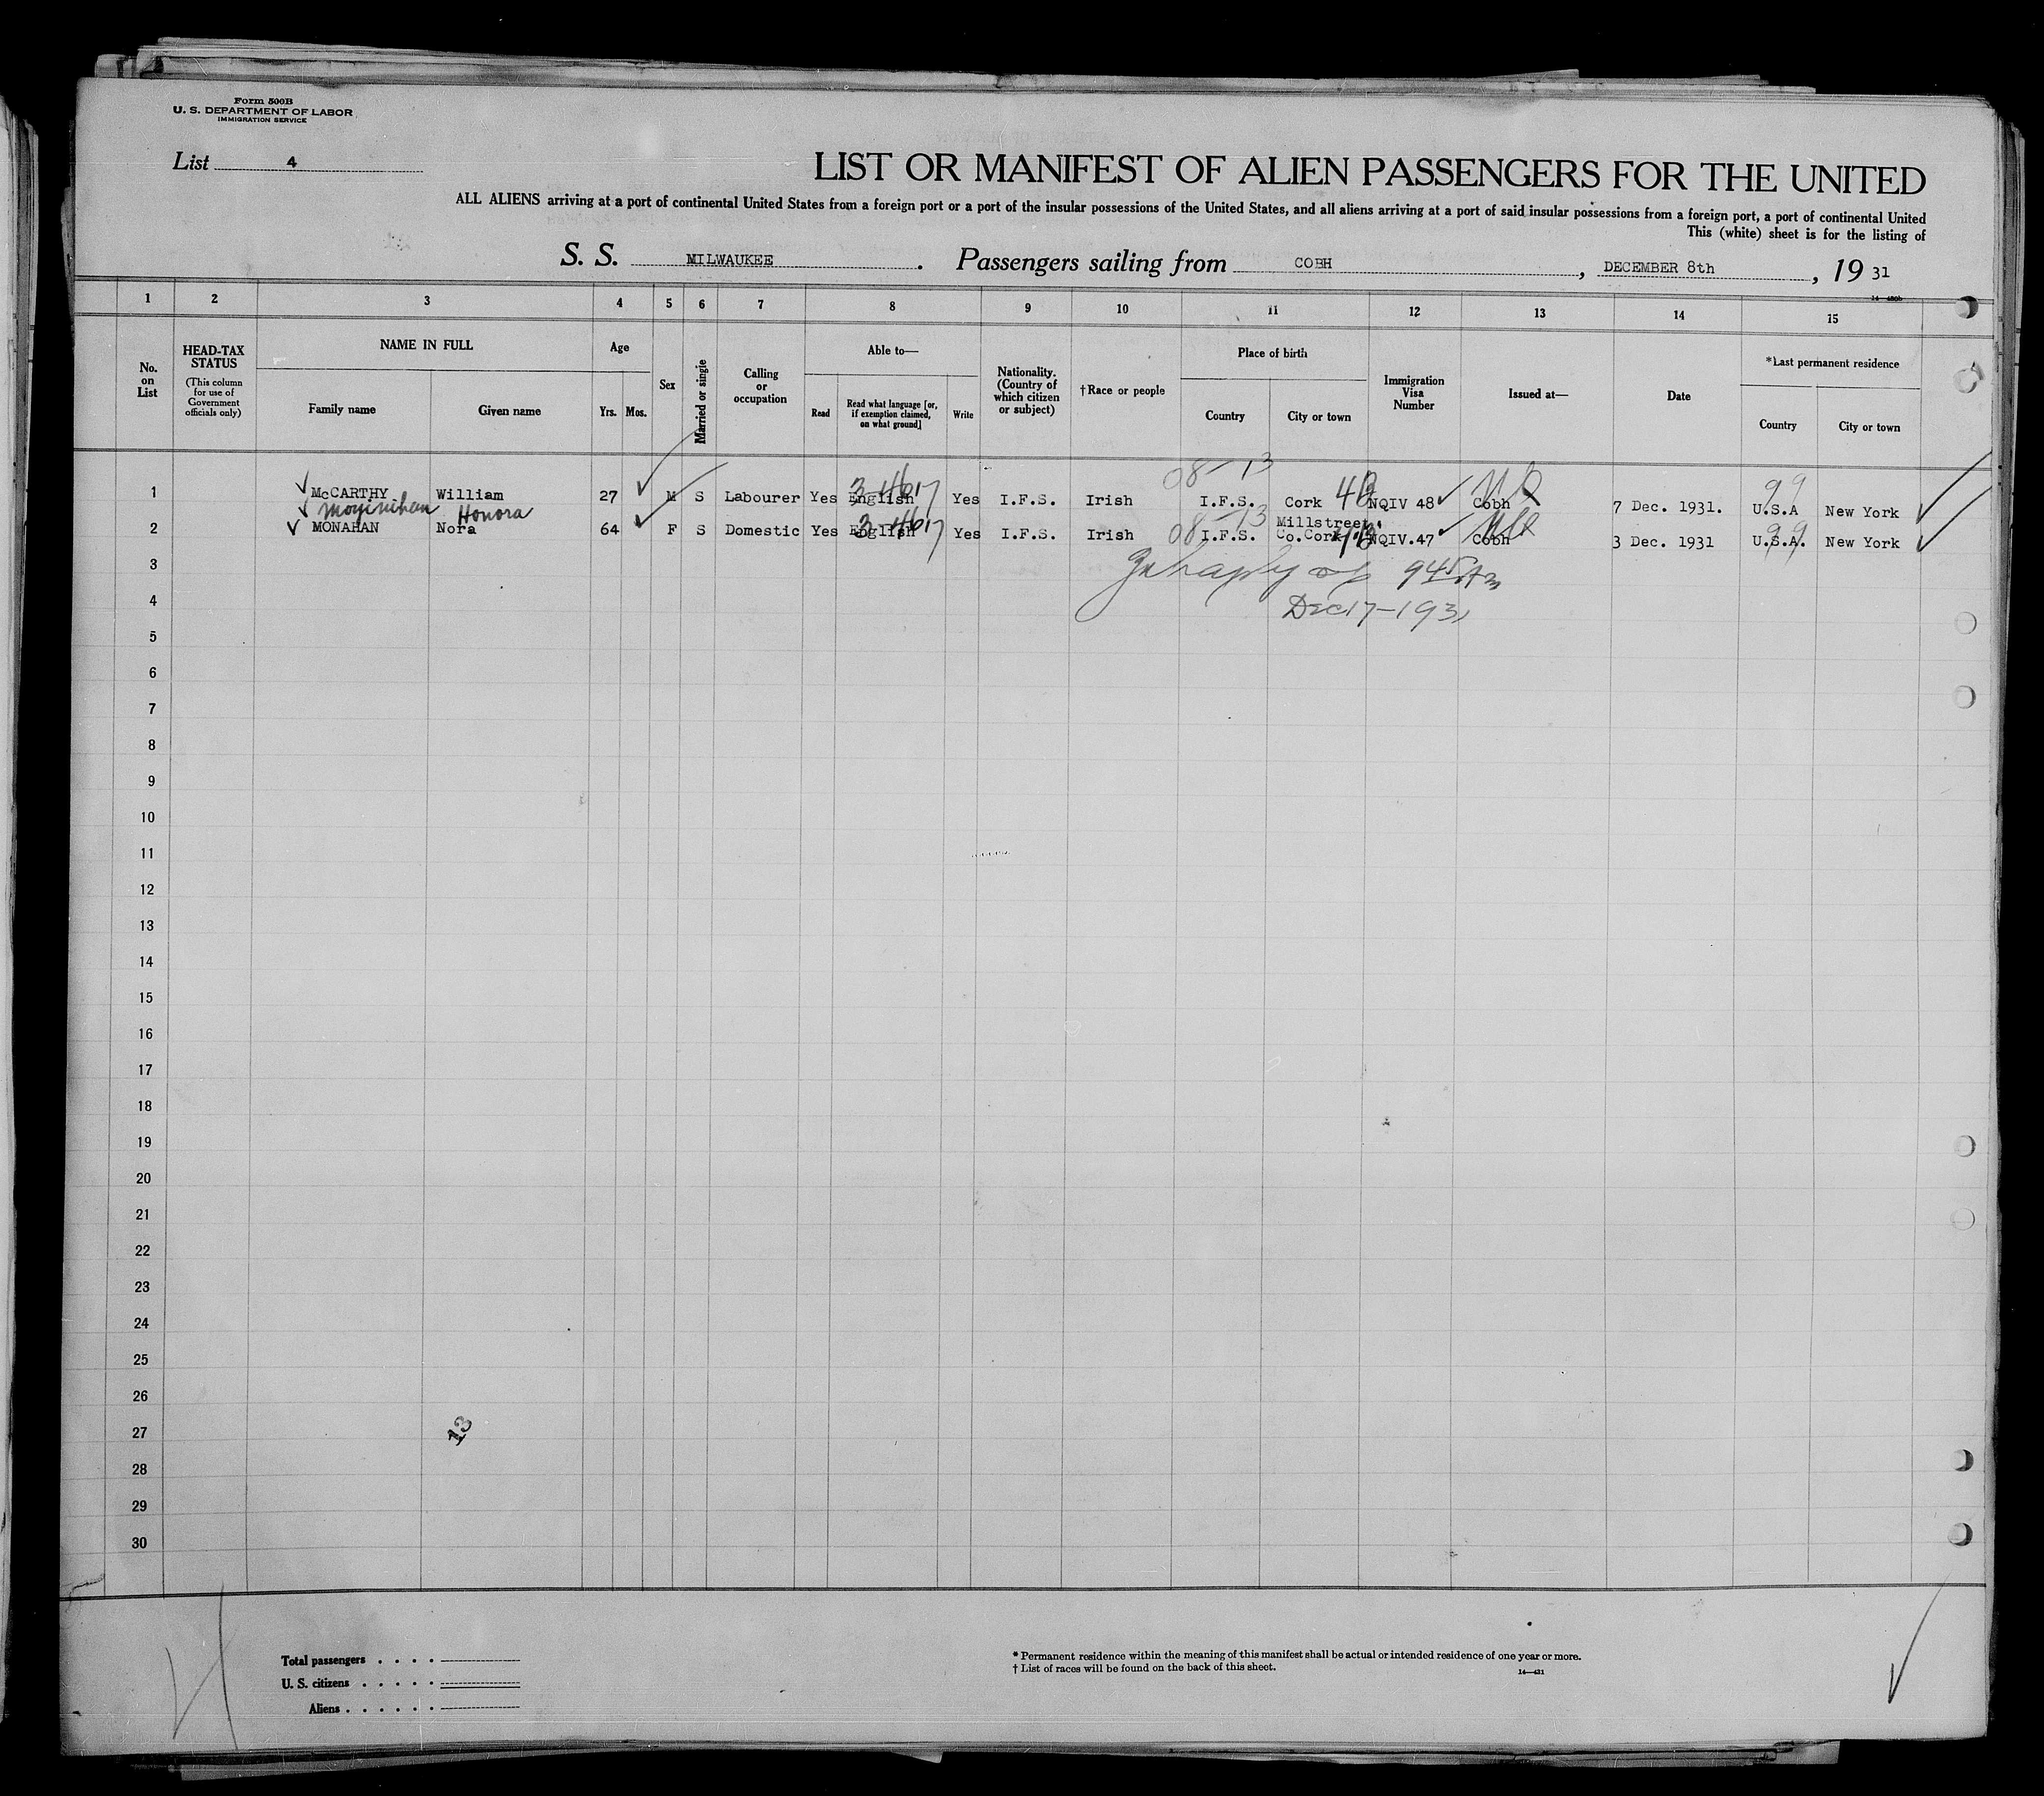 Form 500B
U. S. DEPARTMENT OF LABOR
IMMIGRATION SERVICE
List 4
LIST OR MANIFEST OF ALIEN PASSENGERS FOR THE UNITED
ALL ALIENS arriving at a port of continental United States from a foreign port or a port of the insular possessions of the United States, and all aliens arriving at a port of said insular possessions from a foreign port, a port of continental United
This (white) sheet is for the listing of
S. S. MILWAUKEE. Passengers sailing from COBH, DECEMBER 8th, 19 31
14—430b
1 2 3 4 5 6 7 8 9 10 11 12 13 14 15
No. on List
HEAD-TAX STATUS (This column for use of Government officials only)
NAME IN FULL
Family name Given name
Age
Yrs. Mos.
Sex
Married or single
Calling or occupation
Able to—
Read Read what language [or, if exemption claimed, on what ground] Write
Nationality. (Country of which citizen or subject)
†Race or people
Place of birth
Country City or town
Immigration Visa Number
Issued at—
Date
*Last permanent residence
Country City or town
08-13 99
1 McCARTHY William 27 M S Labourer Yes English Yes I.F.S. Irish I.F.S. Cork NQIV 48 Cobh 7 Dec. 1931. U.S.A New York
Moyinihan Honora
08-13 Millstreet, 99
2 MONAHAN Nora 64 F S Domestic Yes English Yes I.F.S. Irish I.F.S. Co.Cork NQIV.47 Cobh 3 Dec. 1931 U.S.A. New York
3 945 Am
4 Dec 17-1931
5
6
7
8
9
10
11
12
13
14
15
16
17
18
19
20
21
22
23
24
25
26
27 13
28
29
30
Total passengers . . . .
U. S. citizens . . . . .
Aliens . . . . . .
* Permanent residence within the meaning of this manifest shall be actual or intended residence of one year or more.
† List of races will be found on the back of this sheet.
14—431